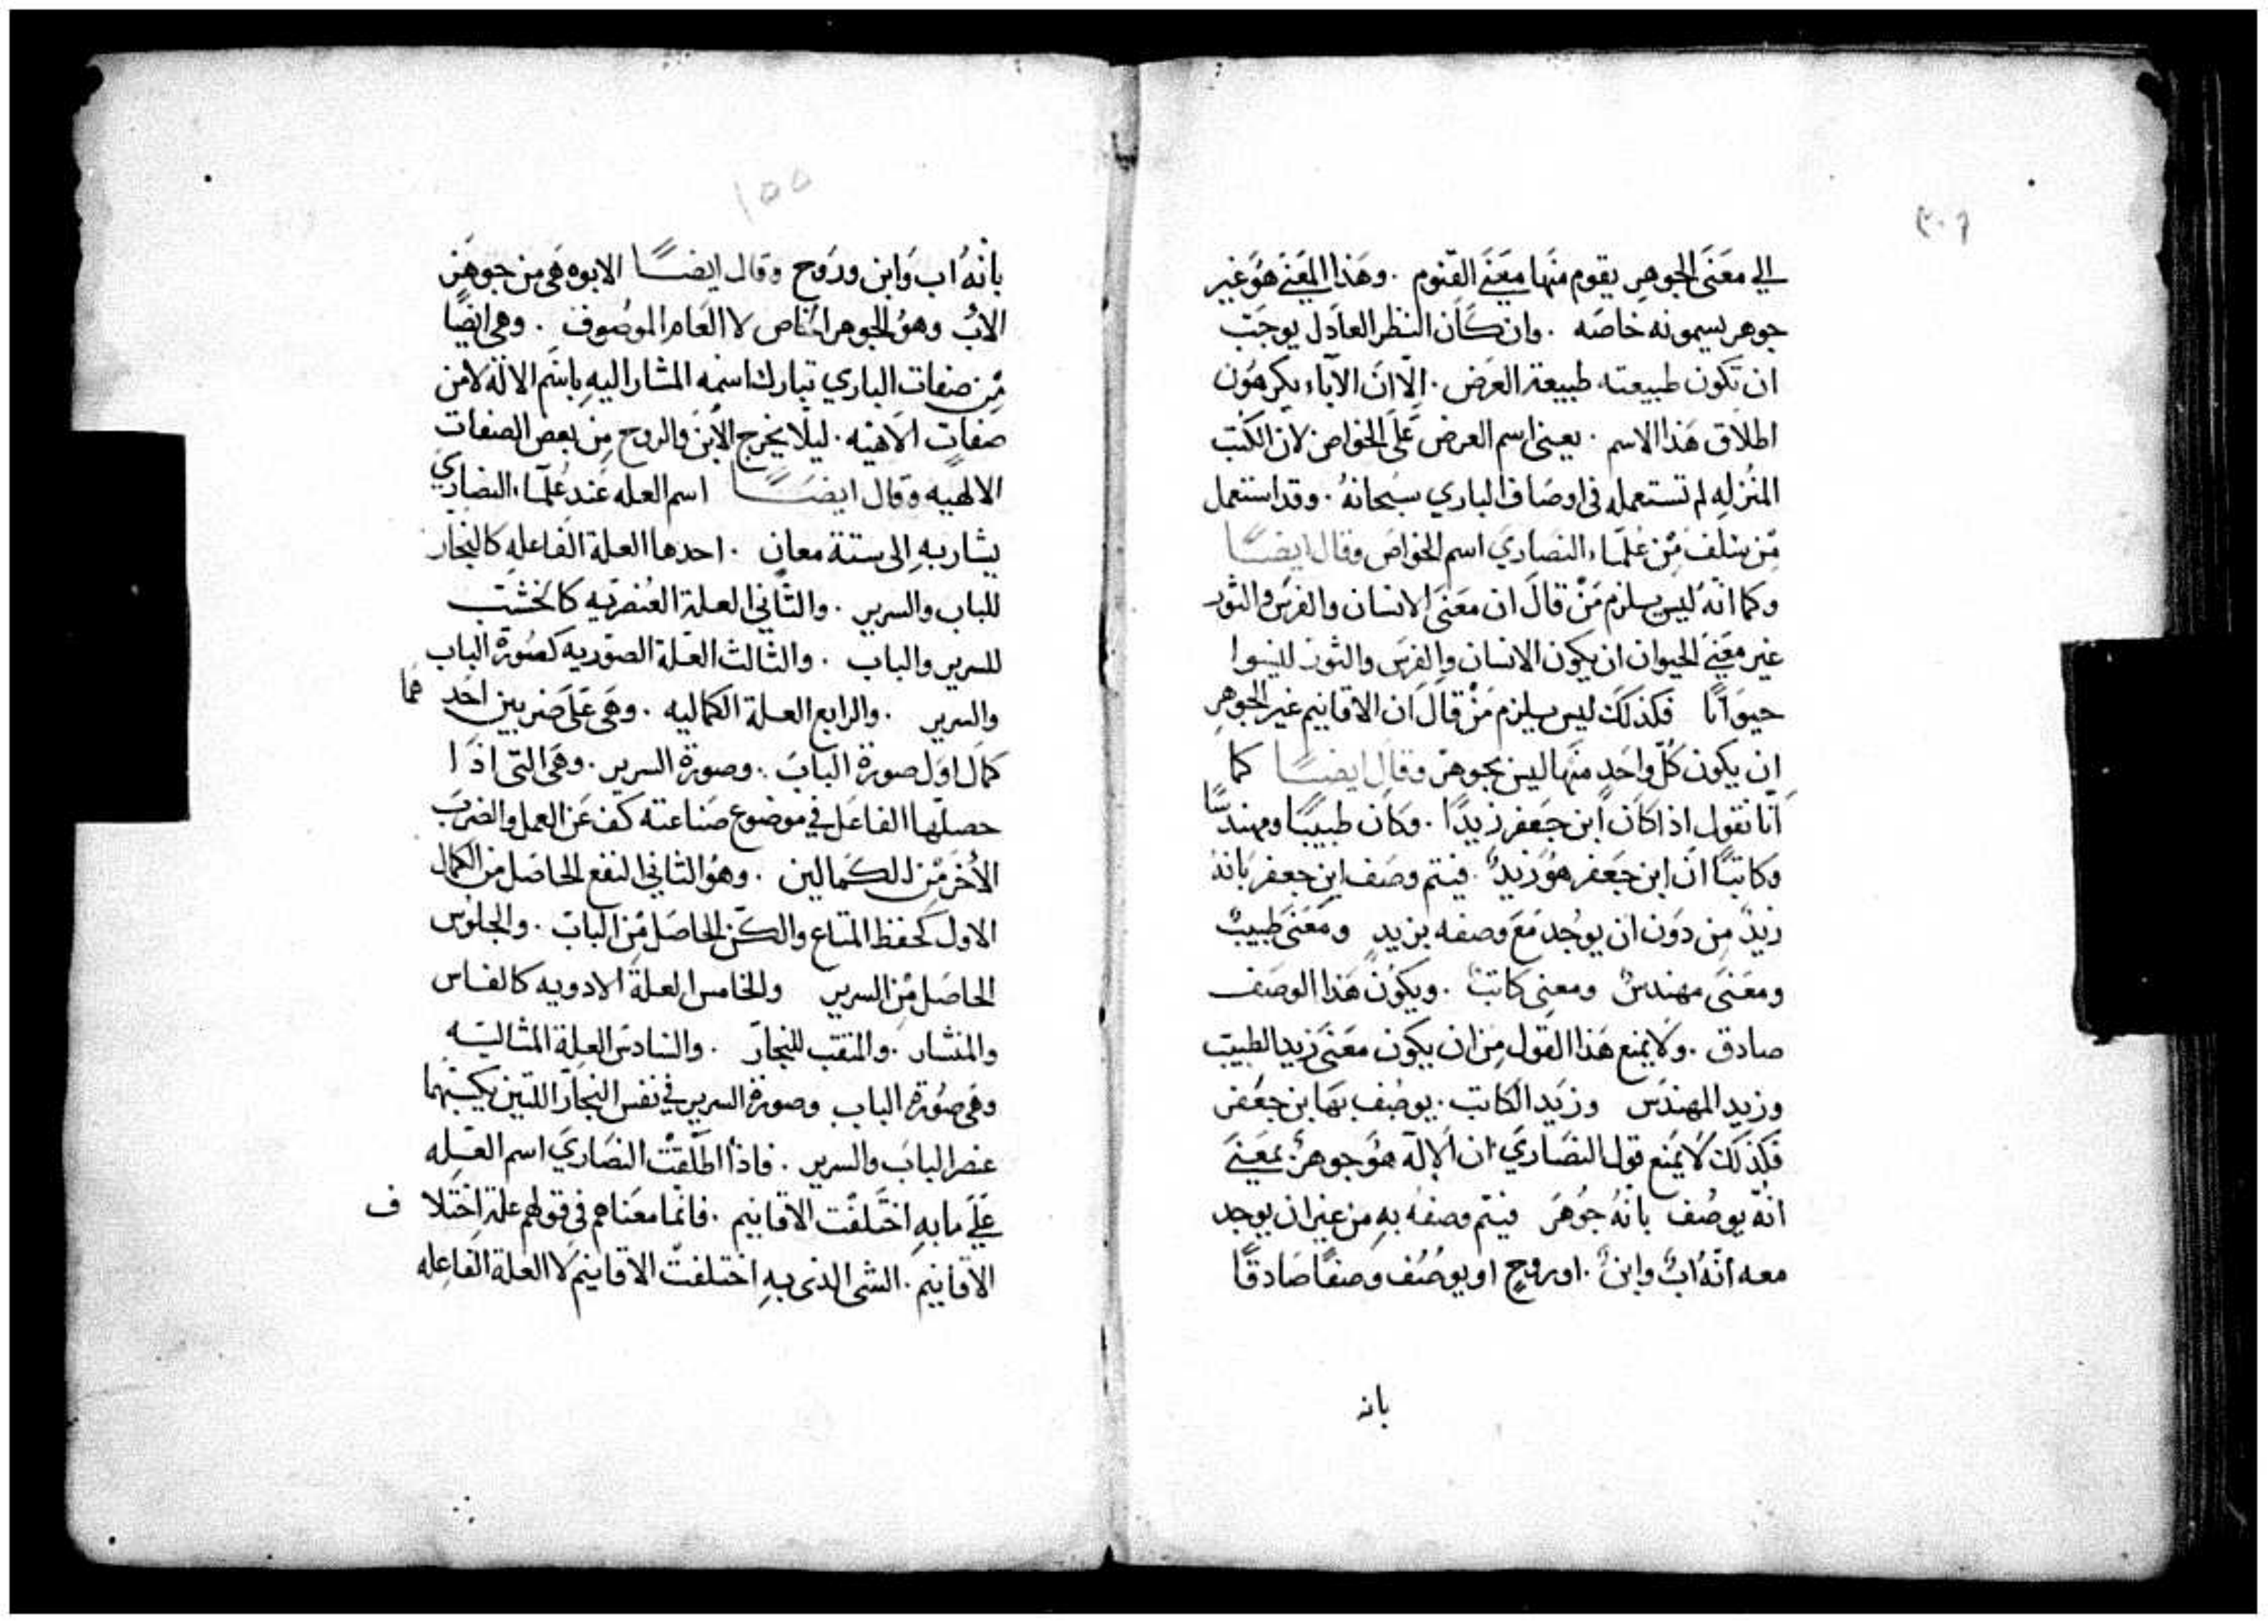 ٣٠٩
الي معنَى الجوهرِ يقوم منها معنَي القنوم . وهَذا المعَنَي هُوَ غير
جوهر يسمونه خاصَه . وان كَان النظر العادل يوجَبّ
ان تكون طبيعته طبيعة العرَض . الّا انَّ الآباء يكرهُون
اطلَاق هَذا الاسم . يعنى اسم العرض عَلَى الخواص لان الكتب
المنُزلهِ لم تستعمله فى اوصَاف الباري سبحانهُ . وقد استعمل
مَن سَلف مِن عُلمَاء النصَاريَ اسم الخواصَ وقال ايضًا
وكما انّهُ ليس يلزم مَنْ قالَ ان معَنَى الانسان والفرسَ والثور
غير معَنَي الحيوان ان يكون الانسان والفرسَ والثور ليسوا
حيوَانًا فكذلكَ ليس يلزم مَنْ قالَ ان الاقانيم غير الجوهرِ
ان يكون كُلّ واحَدٍ منهَا ليس بجوهر وقال ايضًا كما
انّا نقول اذا كَانَ ابن جَعفر زيدًا . وكان طبيبًا ومهندسًا
وكاتبًا انَّ ابن جَعفر هُوَ زيدٌ . فيتم وصَف ابن جعفر بَانهُ
زيدٌ مِن دوَن ان يوجُد مَعَ وصفه بزيدٍ ومَعَنَى طبيبٌ
ومعَنَى مهندسٌ ومعنى كَاتبٌ . ويكوُن هَذا الوصَف
صادق . ولَا يمنع هَذا القول مِن ان يكون معَنَى زيد الطبيبّ
وزيد المهندَس وزيَد الكَاتب . يوصُف بَها ابن جعَفر
فكَذلكَ لَا يمنع قول النصَاريَ ان الإله هُوَ جوهرٌ بمعَنَي
انّهُ يوصُف بانهُ جُوهَر فيتم وصفه به من غير ان يوجد
معه انّهُ ابٌ وابنٌ . او روحٍ او يوصُف وصفًا صَادقًا
بانه
١٥٥
بانّهُ اب وَابن وروَح وقال ايضًا الابوه هَى من جوهَر
الابُ وهوُ الجوهر الخاص لا العَام الموصُوف . وهى ايضًا
مِن صفات الباري تبارك اسمه المشار اليهِ باسَم الالَه لا من
صفات الاهيه . ليلَا يخرج الابنَ والروح مِن بعض الصفات
الالهيه وقال ايضًا اسم العله عَند عُلمَاء النصاريَ
يشار بهِ الى ستة معانٍ . احدها العلة الفاعلهِ كالنجار
للباب والسرير . والثَاني العلة العُنصريه كالخشَبّ
للسرير والباب . والثالث العَلة الصوَريه كصُورة الباب
والسرير . والرابع العلة الكماليه . وهَى عَلى ضَربين احَدهما
كمال اوَل صورة البابَ . وصورة السرير . وهَى التى اذَا
حصلّها الفاعَل في موضوع صَناعته كَف عَن العمل والضربَ
الأخَر مِن الكمالين . وهوُ الثاني النفع الحاصَل مِن الكمال
الاول كحفظ المتاع والكن الحاصَل مِن البابّ . والجلوُس
الحاصَل مِن السرير والخامس العلة الادويه كالفاس
والمنشار . والمنقب للنجارّ . والسادسَ العلة المثاليه
وهَى صُورة الباب وصورة السرير في نفس النجارَ اللتين يكسبهما
عنصر البابَ والسرير . فاذا اطلقتْ النصَاريَ اسم العَله
عَلَي ما بهِ اختَلفتَ الاقانيم . فانّما معَناهم فى قولهم علة اختلاف
الاقانيم . الشى الذى بهِ اختلفتّ الاقانيم لَا العلة الفاعِله